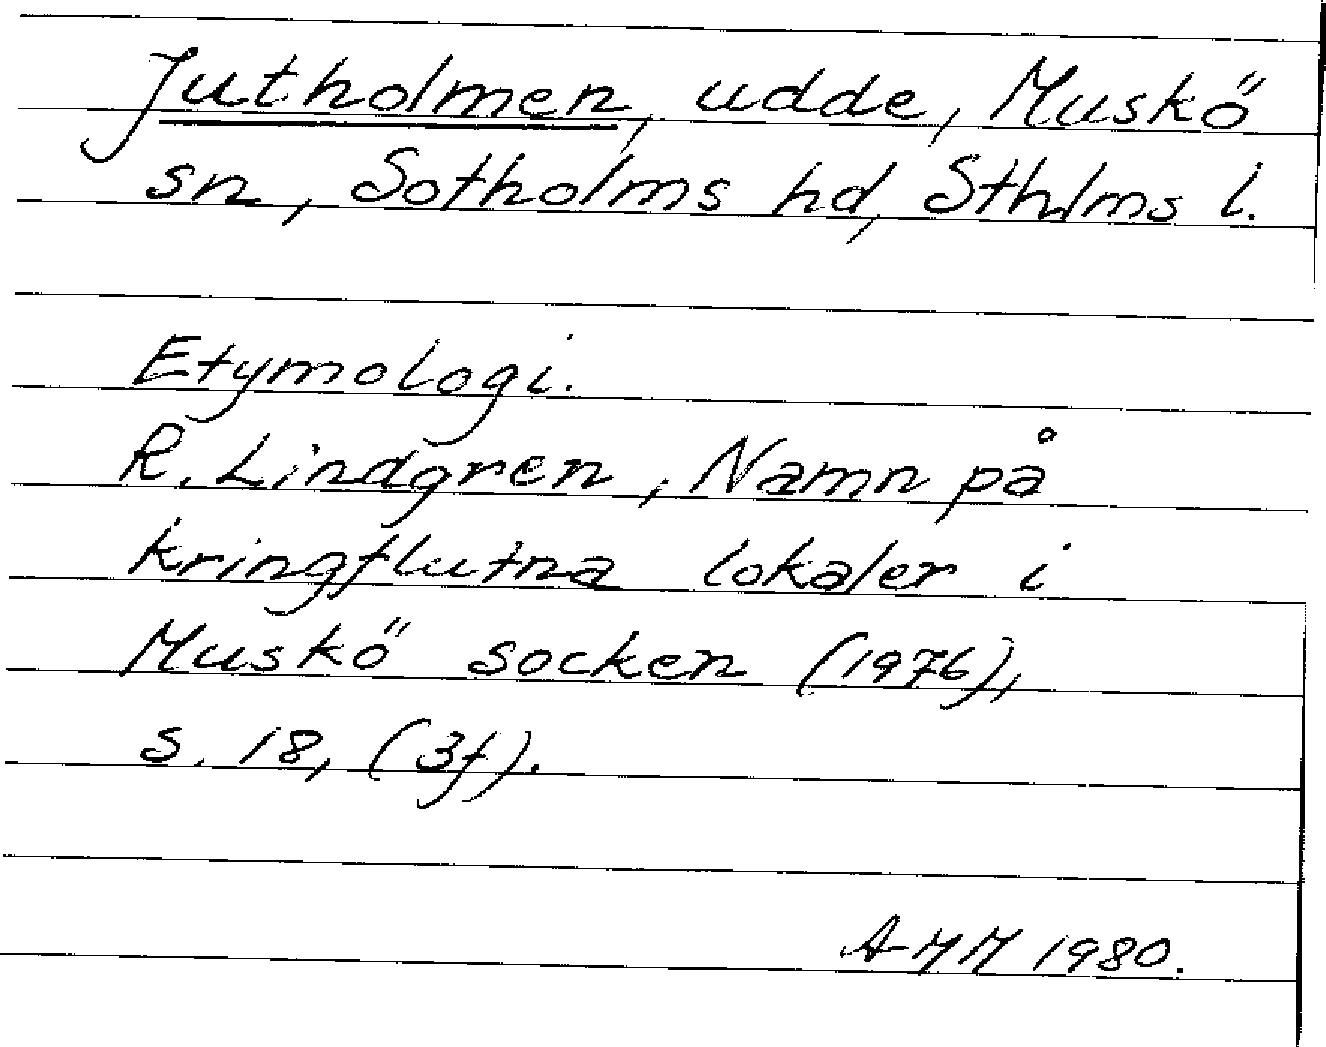 Jutholmen, udde, Muskö
sn, Sotholms hd, Sthlms l.
Etymologi.
R. Lindgren, Namn på
kringflutna lokaler i
Muskö socken (1976),
s. 18, (3f).
A-MM 1980.